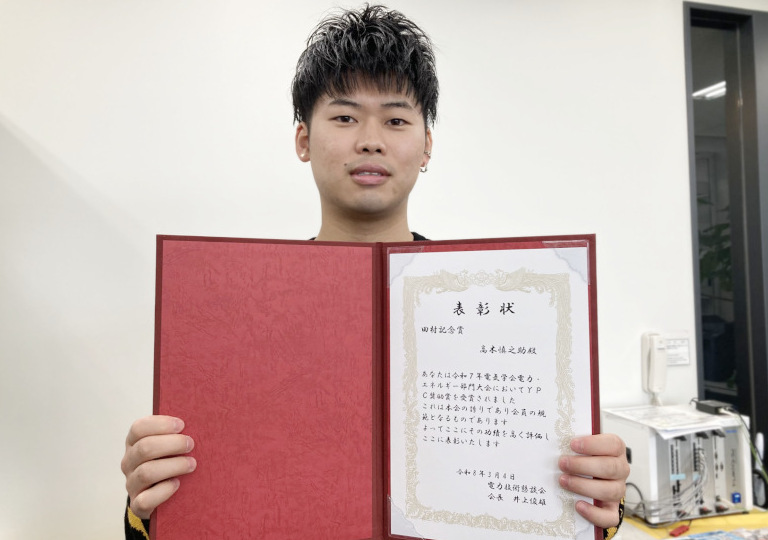 表彰状
田村記念賞
高木慎之助殿
あなたは令和7年電気学会電力・
エネルギー部門大会においてYP
C奨励賞を受賞されました
これは本会の誇りであり会員の規
範となるものであります
よってここにその功績を高く評価し
ここに表彰いたします
令和8年3月4日
電力技術懇談会
会長 井上俊雄